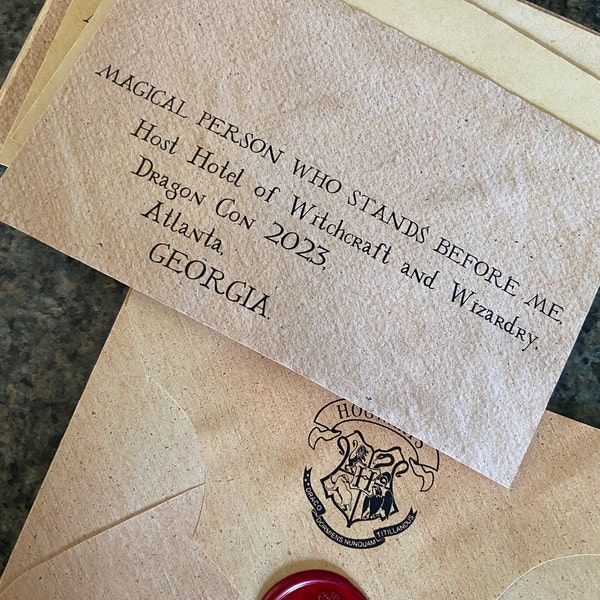 MAGICAL PERSON WHO STANDS BEFORE ME,
Host Hotel of Witchcraft and Wizardry,
Dragon Con 2023,
Atlanta,
GEORGIA.
HOGWARTS
H
DRACO DORMIENS NUNQUAM TITILLANDUS